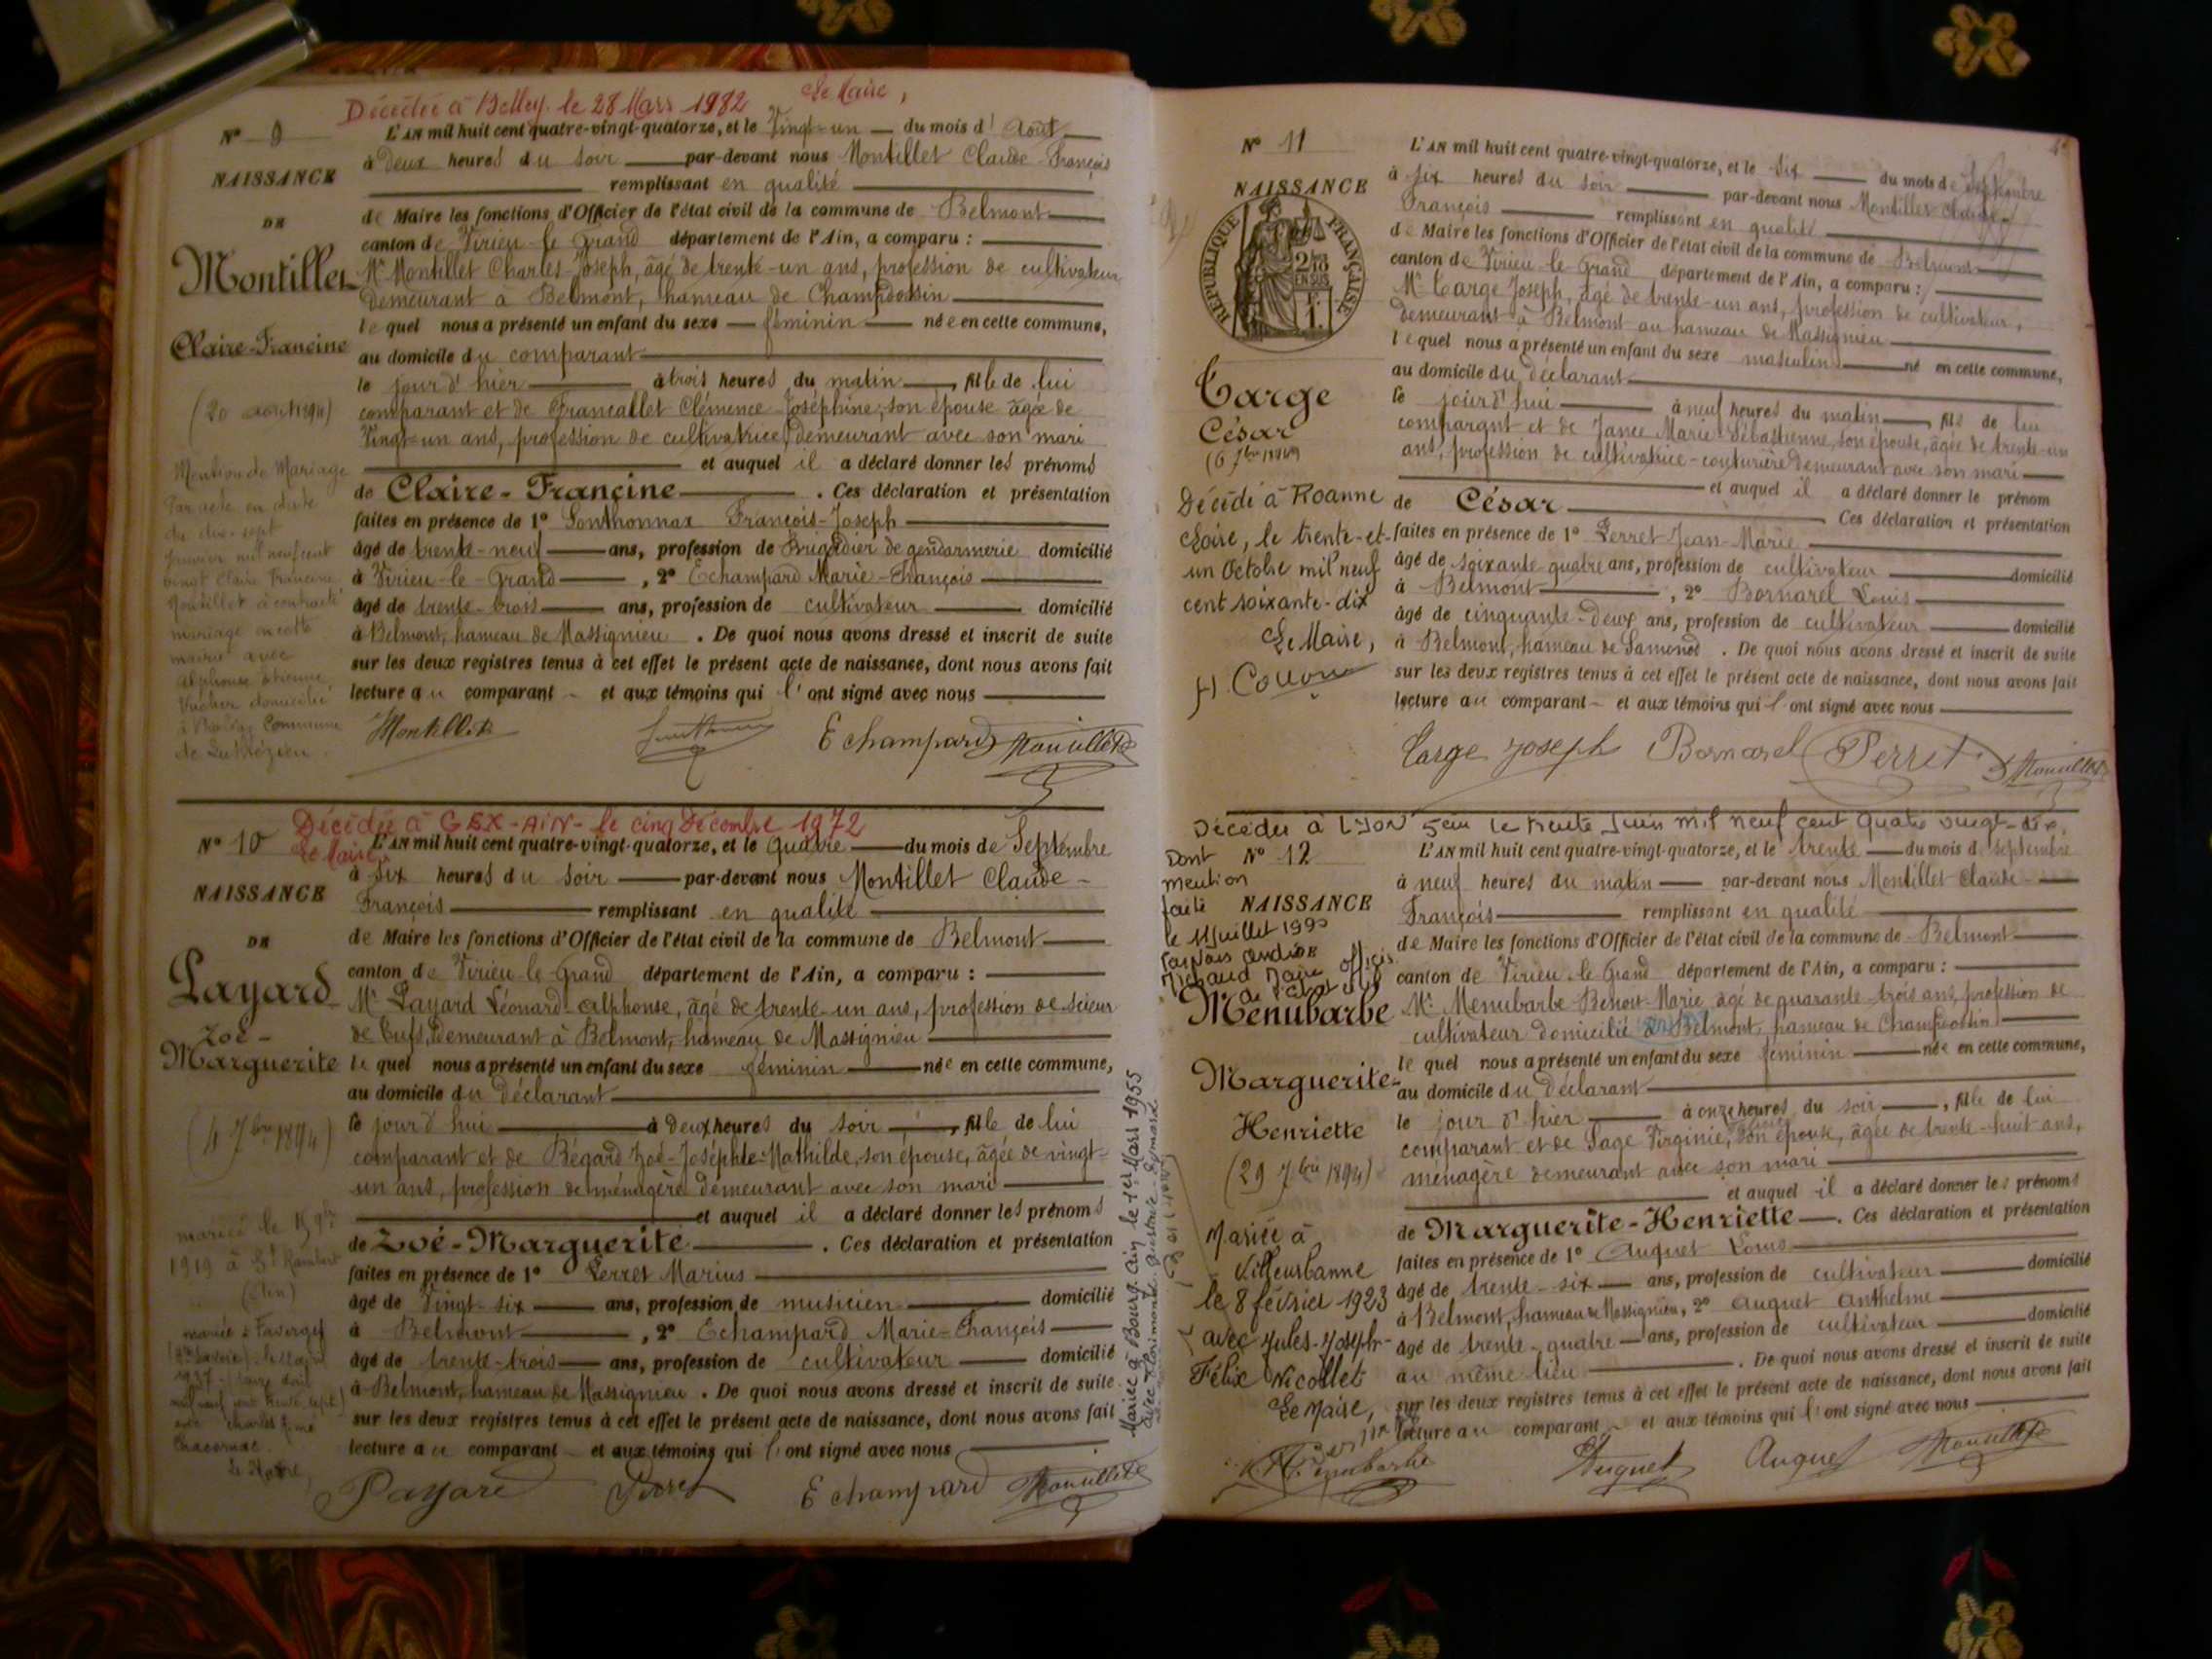 Décédée à Belley le 28 Mars 1982 Le Maire,
N° 9
NAISSANCE
DE
Montillet
Claire-Francine
(20 août 1894)
Mention de Mariage
Par acte en date
du dix-sept
Janvier mil neuf cent
vingt Claire Francine
Montillet a contracté
mariage en cette
mairie avec
Alphonse Etienne
domicilié
Commune
de Luthézieu
L'AN mil huit cent quatre-vingt-quatorze, et le Vingt-un du mois d'Août
à deux heures du soir par-devant nous Montillet Claude-François
remplissant en qualité
de Maire les fonctions d'Officier de l'état civil de la commune de Belmont
canton de Virieu-le-Grand département de l'Ain, a comparu :
Mr Montillet Charles-Joseph, âgé de trente-un ans, profession de cultivateur
demeurant à Belmont, hameau de Champdossin
lequel nous a présenté un enfant du sexe féminin née en cette commune,
au domicile du comparant
le jour d'hier à trois heures du matin, fille de lui
comparant et de Francallet Clémence-Joséphine, son épouse âgée de
Vingt-un ans, profession de cultivatrice demeurant avec son mari
et auquel il a déclaré donner les prénoms
de Claire-Francine. Ces déclaration et présentation
faites en présence de 1° Lonthonnax François-Joseph
âgé de trente-neuf ans, profession de Brigadier de gendarmerie domicilié
à Virieu-le-Grand, 2° Echampard Marie-François
âgé de trente-trois ans, profession de cultivateur domicilié
à Belmont, hameau de Massignieu. De quoi nous avons dressé et inscrit de suite
sur les deux registres tenus à cet effet le présent acte de naissance, dont nous avons fait
lecture au comparant et aux témoins qui l'ont signé avec nous
Montillet Echampard Montillet
Décédée à GEX-AIN- le cinq Décembre 1972
Le Maire,
N° 10
NAISSANCE
DE
Payard
Zoé-
Marguerite
(4 7bre 1894)
mariée le
1919 à St Rambert
(Ain)
mariée à Faverges
1937
mil neuf cent trente sept)
avec Charles
Chacornac
Le Maire,
L'AN mil huit cent quatre-vingt-quatorze, et le Quatre du mois de Septembre
à six heures du soir par-devant nous Montillet Claude-
François remplissant en qualité
de Maire les fonctions d'Officier de l'état civil de la commune de Belmont
canton de Virieu-le-Grand département de l'Ain, a comparu :
Mr Payard Léonard-Alphonse, âgé de trente-un ans, profession de scieur
de tufs, demeurant à Belmont, hameau de Massignieu
lequel nous a présenté un enfant du sexe féminin née en cette commune,
au domicile du déclarant
le jour d'hui à deux heures du soir, fille de lui
comparant et de Bégard Zoé-Joséphte-Mathilde, son épouse, âgée de vingt-
un ans, profession de ménagère demeurant avec son mari
et auquel il a déclaré donner les prénoms
de Zoé-Marguerite. Ces déclaration et présentation
faites en présence de 1° Perret Marius
âgé de Vingt-six ans, profession de musicien domicilié
à Belmont, 2° Echampard Marie-François
âgé de trente-trois ans, profession de cultivateur domicilié
à Belmont, hameau de Massignieu. De quoi nous avons dressé et inscrit de suite
sur les deux registres tenus à cet effet le présent acte de naissance, dont nous avons fait
lecture au comparant et aux témoins qui l'ont signé avec nous
Payard Perret Echampard Montillet
Mariée à Bourg. Ain le 1er Mars 1955
N° 11
NAISSANCE
RÉPUBLIQUE FRANÇAISE
2/10 EN SUS
Targe
César
(6 7bre 1894)
Décédé à Roanne
Loire, le trente-et-
un Octobre mil neuf
cent soixante-dix
Le Maire,
L'AN mil huit cent quatre-vingt-quatorze, et le six du mois de Septembre
à six heures du soir par-devant nous Montillet Claude-
François remplissant en qualité
de Maire les fonctions d'Officier de l'état civil de la commune de Belmont
canton de Virieu-le-Grand département de l'Ain, a comparu :
Mr Targe Joseph, âgé de trente-un ans, profession de cultivateur,
demeurant à Belmont au hameau de Massignieu
lequel nous a présenté un enfant du sexe masculin né en cette commune,
au domicile du déclarant
le jour d'hui à neuf heures du matin, fils de lui
comparant et de Janez Marie-Sébastienne, son épouse, âgée de trente-un
ans, profession de cultivatrice-couturière demeurant avec son mari
et auquel il a déclaré donner le prénom
de César Ces déclaration et présentation
faites en présence de 1° Perret Jean-Marie
âgé de soixante-quatre ans, profession de cultivateur domicilié
à Belmont, 2° Bornarel Louis
âgé de cinquante-deux ans, profession de cultivateur domicilié
à Belmont, hameau de Lamenod. De quoi nous avons dressé et inscrit de suite
sur les deux registres tenus à cet effet le présent acte de naissance, dont nous avons fait
lecture au comparant et aux témoins qui l'ont signé avec nous
Targe Joseph Bornarel Perret Montillet
Décédée à LYON 5em le trente Juin mil neuf cent quatre vingt-dix.
Dont
mention
faite
le 11 Juillet 1990
N° 12
NAISSANCE
Menubarbe
Marguerite-
Henriette
(29 7bre 1894)
Mariée à
Villeurbanne
le 8 février 1923
avec Jules-Joseph-
Félix Nicollet
Le Maire,
L'AN mil huit cent quatre-vingt-quatorze, et le trente du mois de septembre
à neuf heures du matin par-devant nous Montillet Claude-
François remplissant en qualité
de Maire les fonctions d'Officier de l'état civil de la commune de Belmont
canton de Virieu-le-Grand département de l'Ain, a comparu :
Mr Menubarbe Benoit-Marie, âgé de quarante-trois ans, profession de
cultivateur domicilié à Belmont, hameau de Champdossin
lequel nous a présenté un enfant du sexe féminin née en cette commune,
au domicile du déclarant
le jour d'hier à onze heures du soir, fille de lui
comparant et de Sage Virginie, son épouse, âgée de trente-huit ans,
ménagère demeurant avec son mari
et auquel il a déclaré donner les prénoms
de Marguerite-Henriette. Ces déclaration et présentation
faites en présence de 1° Auguet Louis
âgé de trente-six ans, profession de cultivateur domicilié
à Belmont, hameau de Massignieu, 2° Auguet Anthelme
âgé de trente-quatre ans, profession de cultivateur domicilié
au même lieu. De quoi nous avons dressé et inscrit de suite
sur les deux registres tenus à cet effet le présent acte de naissance, dont nous avons fait
lecture au comparant et aux témoins qui l'ont signé avec nous
Menubarbe Auguet Auguet Montillet